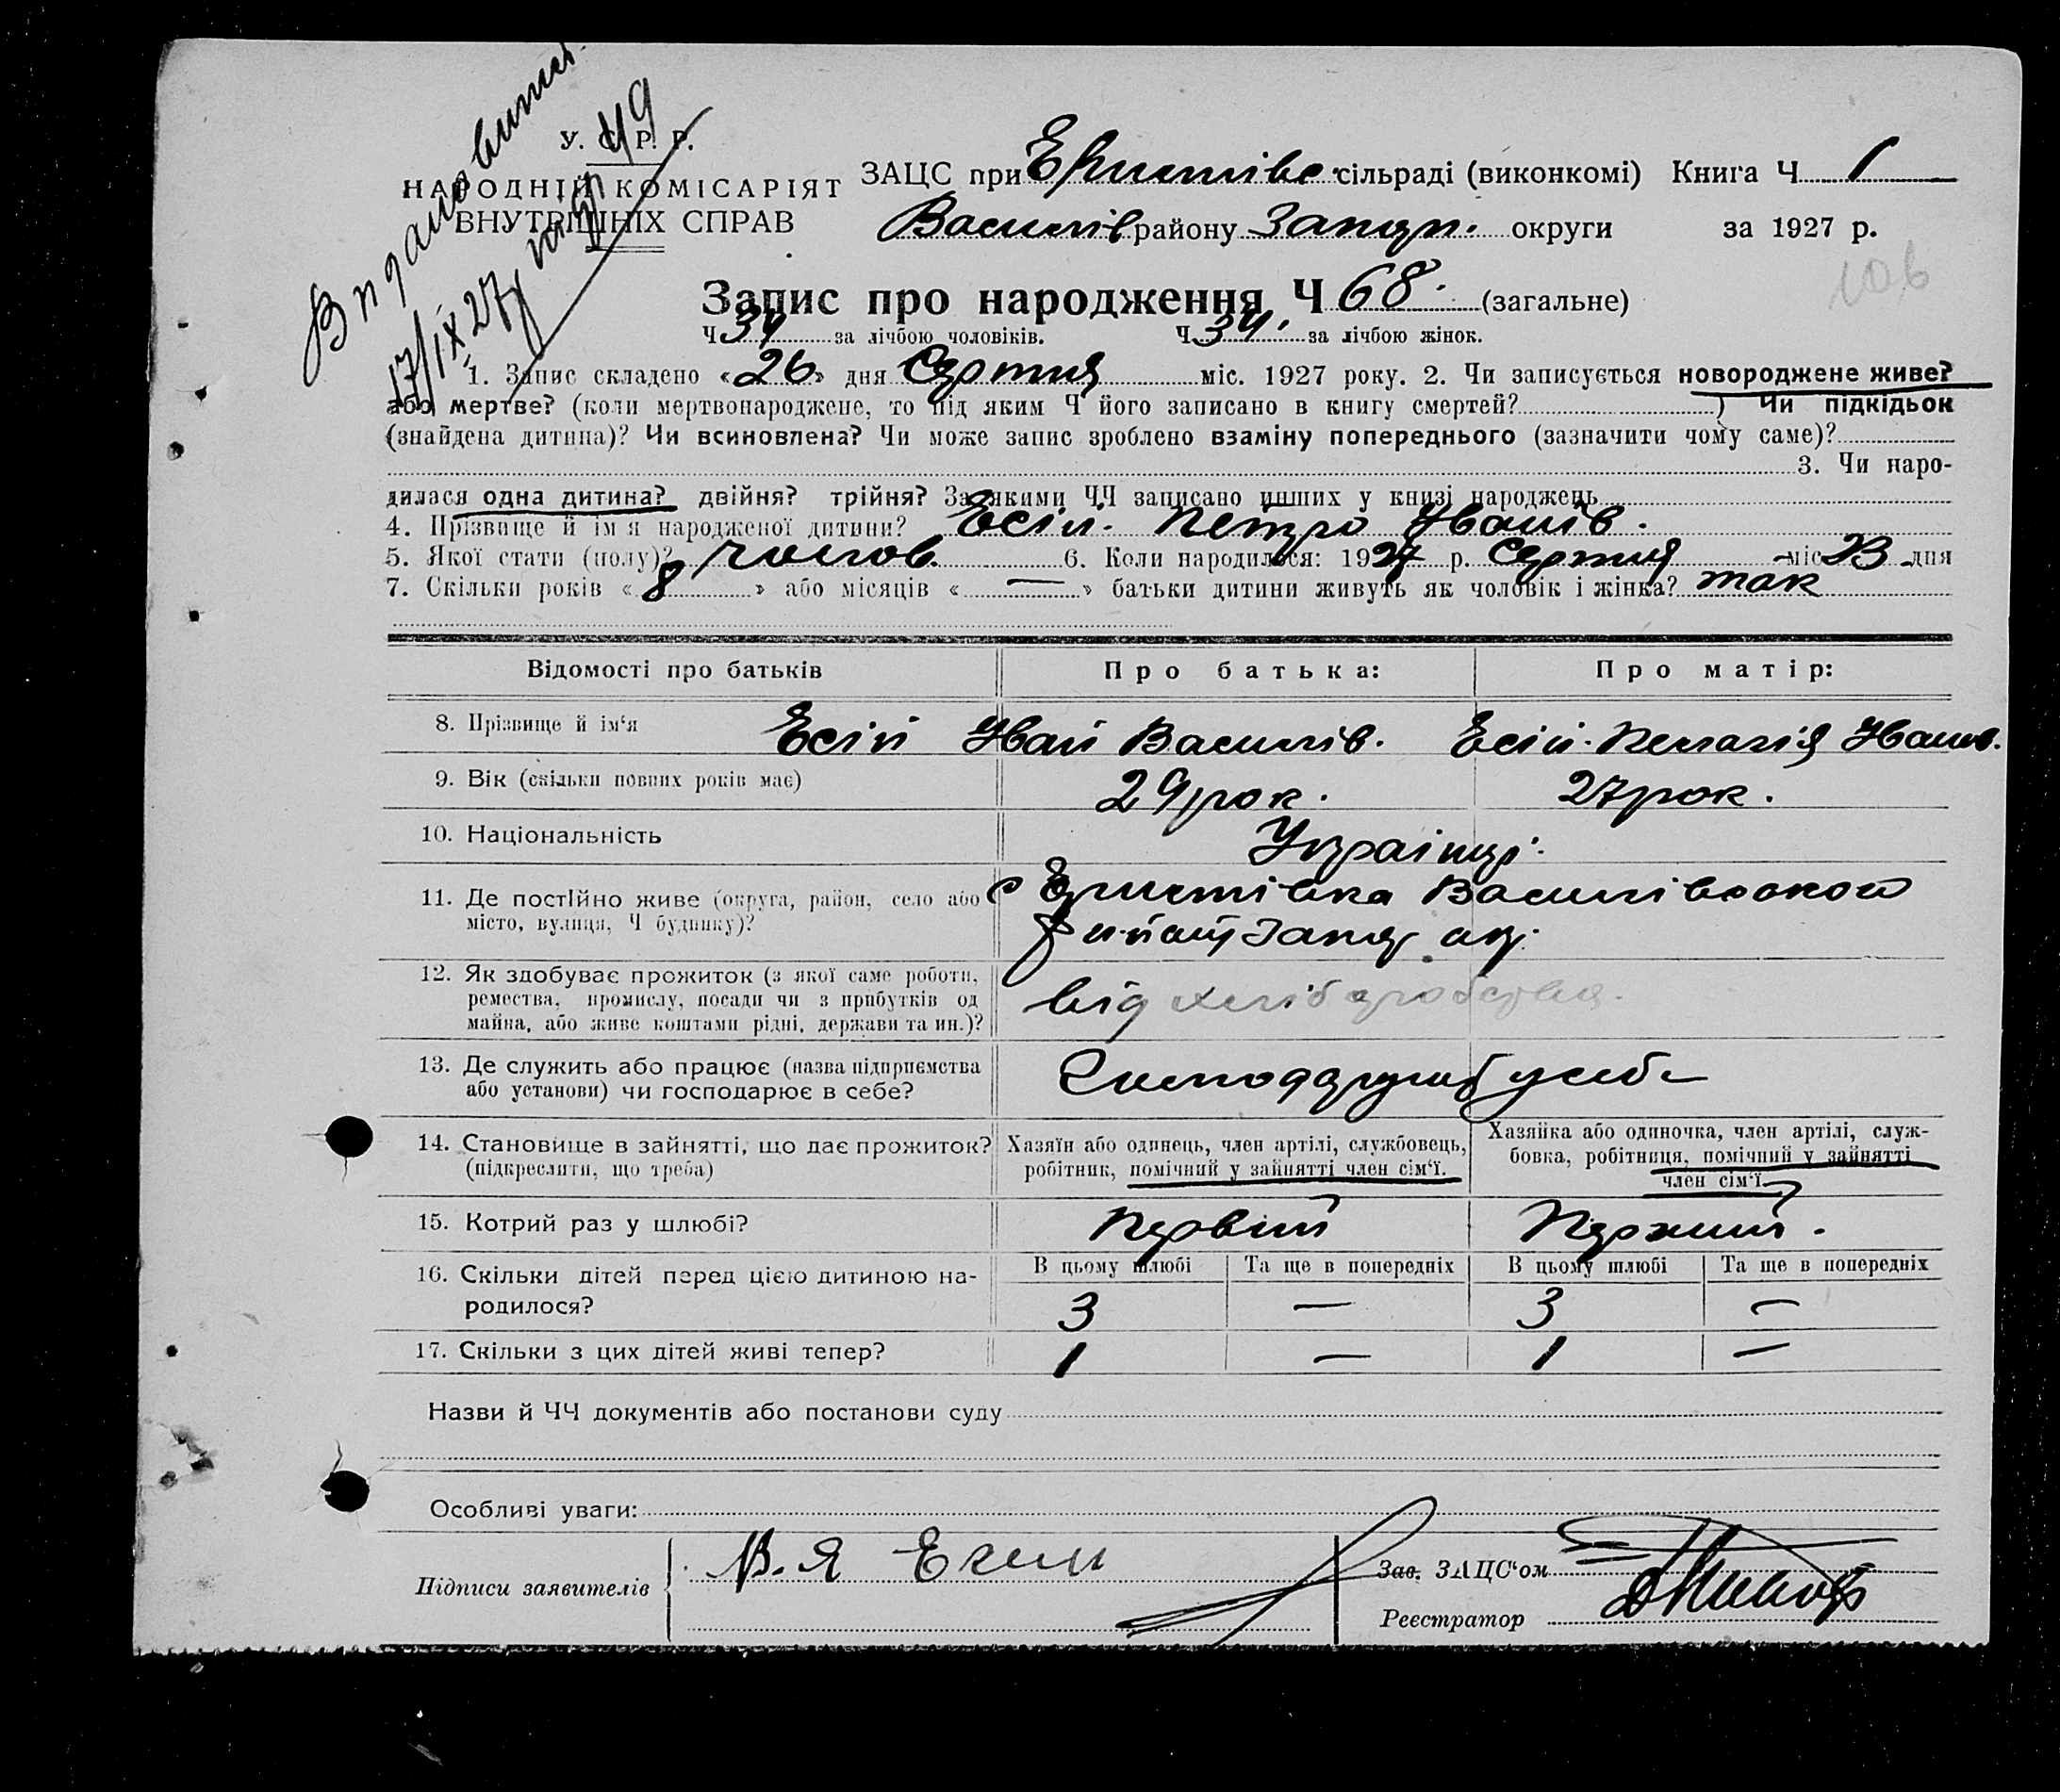 Видано витяг
17/IX 27 р
49
У. С. Р. Р.
НАРОДНІЙ КОМІСАРІЯТ
ВНУТРІШНІХ СПРАВ
ЗАЦС при Еристівс. сільраді (виконкомі) Книга Ч 1
Василів району Запор. округи за 1927 р.
106
Запис про народження Ч 68. (загальне)
Ч 34 за лічбою чоловіків. Ч 34. за лічбою жінок.
1. Запис складено «26» дня Серпня міс. 1927 року. 2. Чи записується новороджене живе?
або мертве? (коли мертвонароджене, то під яким Ч його записано в книгу смертей? ) Чи підкідьок
(знайдена дитина)? Чи всиновлена? Чи може запис зроблено взаміну попереднього (зазначити чому саме)?
3. Чи наро-
дилася одна дитина? двійня? трійня? За якими ЧЧ записано инших у книзі народжень
4. Прізвище й ім'я народженої дитини? Есіп. Петро Іванів.
5. Якої стати (полу)? чолов. 6. Коли народилося: 1927 р. Серпня міс 23 дня
7. Скільки років «8» або місяців « — » батьки дитини живуть як чоловік і жінка? так
Відомості про батьків Про батька: Про матір:
8. Прізвище й ім'я Есіп Іван Василів. Есіп. Пелагія Іванів.
9. Вік (скільки повних років має) 29 рок. 27 рок.
10. Національність Українці.
11. Де постійно живе (округа, район, село або с Еристівка Василівського
місто, вулиця, Ч будинку)? району Запор ок.
12. Як здобуває прожиток (з якої саме роботи, від хліборобства.
ремества, промислу, посади чи з прибутків од
майна, або живе коштами рідні, держави та ин.)?
13. Де служить або працює (назва підприємства
або установи) чи господарює в себе? у себе
14. Становище в зайнятті, що дає прожиток? Хазяїн або одинець, член артілі, службовець, Хазяйка або одиночка, член артілі, служ-
(підкреслити, що треба) робітник, помічний у зайнятті член сім'ї. бовка, робітниця, помічний у зайнятті
член сім'ї
15. Котрий раз у шлюбі? Первий Перший.
16. Скільки дітей перед цією дитиною на- В цьому шлюбі Та ще в попередніх В цьому шлюбі Та ще в попередніх
родилося? 3 — 3 —
17. Скільки з цих дітей живі тепер? 1 — 1 —
Назви й ЧЧ документів або постанови суду
Особливі уваги:
Підписи заявителів В. Я Есип
Зав. ЗАЦС'ом
Реєстратор